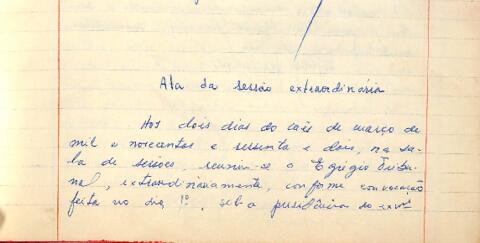 Ata da sessão extraordinária
Aos dois dias do mês de março de
mil e novecentos e sessenta e dois, na sa-
la de sessões, reuniu-se o Egrégio Tribu-
nal, extraordinariamente, conforme convocação
feita no dia 1º, sob a presidência do exmº